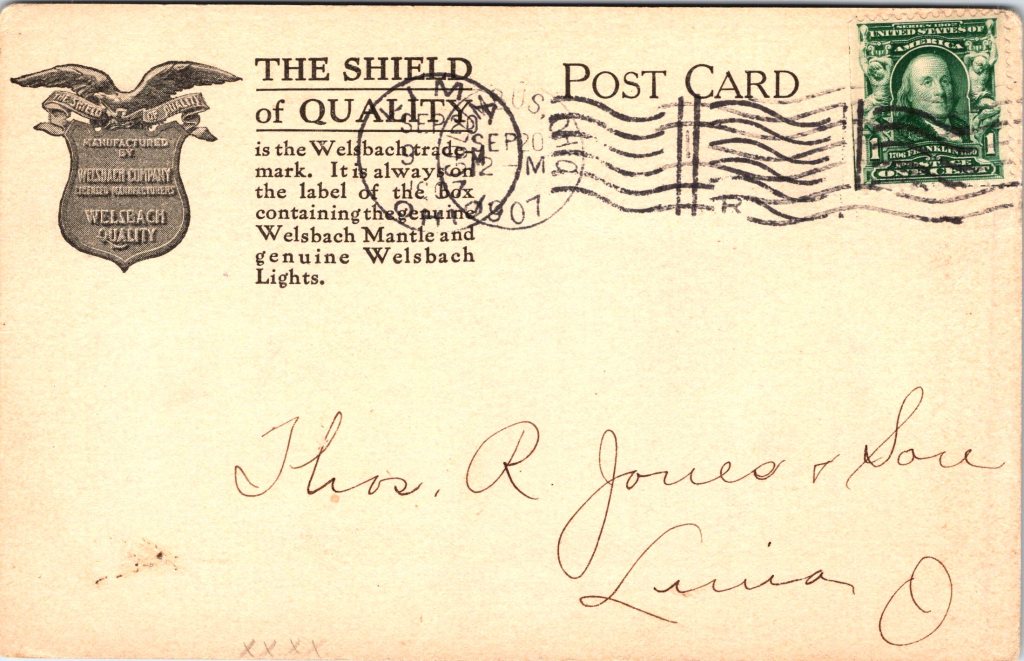 THE SHIELD
of QUALITY
is the Welsbach trade-
mark. It is always on
the label of the box
containing the genuine
Welsbach Mantle and
genuine Welsbach
Lights.
THE SHIELD OF QUALITY
MANUFACTURED
BY
WELSBACH COMPANY
WELSBACH
QUALITY
POST CARD
LIMA
OHIO
SEP 20
1907
OHIO
SEP 20
12 - M
1907
R
SERIES 1902
UNITED STATES OF
AMERICA
1 1
1706 FRANKLIN 1790
ONE CENT
Thos. R. Jones & Son
Lima O
xxxx